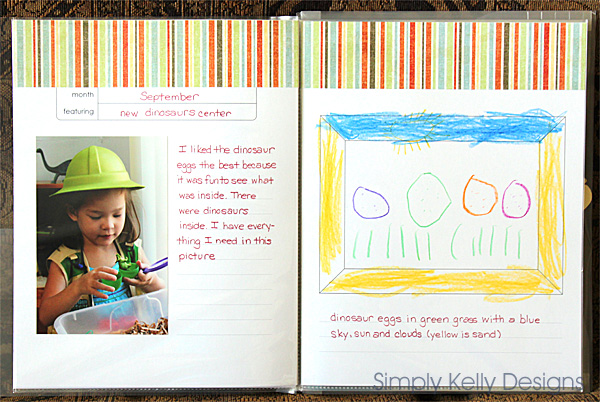 month September
featuring new dinosaurs center
I liked the dinosaur
eggs the best because
it was fun to see what
was inside. There
were dinosaurs
inside. I have every-
thing I need in this
picture
dinosaur eggs in green grass with a blue
sky, sun and clouds (yellow is sand)
Simply Kelly Designs